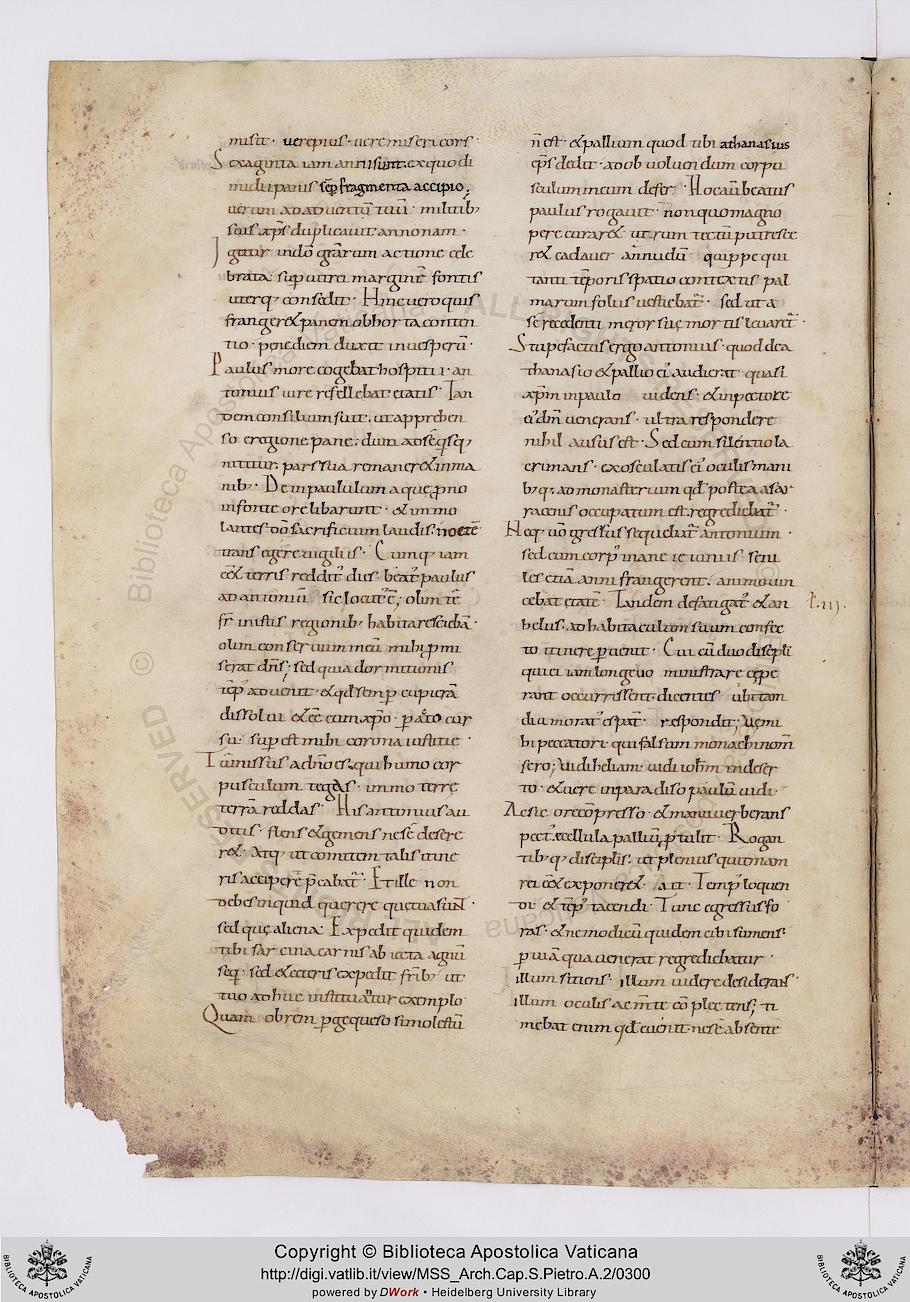 misit · vere pius · vere misericors ·
Sexaginta iam anni sunt · ex quo di
midii panis sēp fragmenta accipio ;
verum ad adventū tuū · militib;
suis xp̄s duplicavit annonam ·
Igitur in dn̄o grārum actione cele
brata · sup vitrei marginē fontis
uterq; consedit · Hinc vero quis
frangeret panem obhorta conten
tio · pene diem duxit in vesperū ·
Paulus more cogebat hospitii · an
tonius iure refellebat etatis · Tan
dem consilium fuit · ut apprehen
so e regione pane · dum ad se q̄sq;
nititur · pars sua remaneret in ma
nib; · Dein paululum aque p̄no
in fonte ore libarunt · et immo
lantes dō sacrificium laudis · noctē
trans egere vigiliis · Cumq; iam
eet̄ terris redditꝰ dies · beatꝰ paulus
ad antoniū sic locutꝰ ē ; olim te
fr̄ in istis regionib; habitare sciebā ·
olim conservum meū mihi p̄mi
serat dn̄s ; sed quia dormitionis
tēpꝰ advenit · et qd̄ semp cupierā
dissolvi et eē cum xp̄o · pacto cur
su · sup est mihi corona iustitie ·
Tu missus a dn̄o es · qui humo cor
pusculum tegas · immo terre
terrā reddas · His antonius au
ditis · flens et gemens ne sē desere
ret · Atq; ut comitem talis itine
ris acciperet p̄cabatꝰ · Et ille non
debes inquid querere que tua sunt ·
sed que aliena · Expedit quidem
tibi sarcina carnis abiecta agnū
seq · sed et ceteris expedit frīb; ut
tuo adhuc instituantur exemplo
Quam obrem p̄ge queso si molestū
n̄ est · et pallium quod tibi athanasius
ep̄s dedit · ad obvolvendum corpu
sculum meum defer · Hoc autē beatus
paulus rogavit · non quo magno
pere curaret · utrum tectū putresce
ret cadaver an nudū · quippe qui
tanti tēporis spatio contextis pal
marum foliis vestiebatꝰ · sed ut a
se recedenti meror sue mortis levaretꝰ ·
Stupefactus ergo antonius · quod de a
thanasio et pallio eiꝰ audierat · quasi
xp̄m in paulo videns · et in pectore
eiꝰ dm̄ venerans · ultra respondere
nihil ausus est · Sed cum silentio la
crimans · exosculatis eiꝰ oculis mani
b;q; · ad monasterium qd̄ postea a sar
racenis occupatum est · regrediebatꝰ ·
Neq; vō gressus sequebatꝰ antonium ·
sed cum corpꝰ inane ieiuniis seni
les etiā anni frangerent · animo vin
cebat etatē · Tandem defatigatꝰ et an
helus · ad habitaculum suum confec
to itinere pvenit · Cui cū duo discipli
qui ei iam longevo ministrare cepe
rant occurrissent dicentes ubi tam
diu moratꝰ es pat̄ · respondit ; Ve mi
hi peccatori · qui falsum monachi nom̄
fero ; vidi heliam · vidi ioh̄m in deser
to · et vere in paradiso paulū vidi ·
Ac sic ore cōpresso · et manu verberans
pectꝰ · e cellula palliū p̄tulit · Rogan
tib;q; disciplis · ut plenius quidnam
rei eet̄ exponeret · ait · Tempꝰ loquen
di · et tēpꝰ tacendi · Tunc egressus fo
ras · et ne modicū quidem cibi sumens ·
p viā qua venerat regrediebatur ·
illum sitiens · illum videre desiderans ·
illum oculis ac m̄te cō plectens ; ti
mebat enim qd̄ evenit · ne se absente
Copyright © Biblioteca Apostolica Vaticana
http://digi.vatlib.it/view/MSS_Arch.Cap.S.Pietro.A.2/0300
powered by DWork • Heidelberg University Library